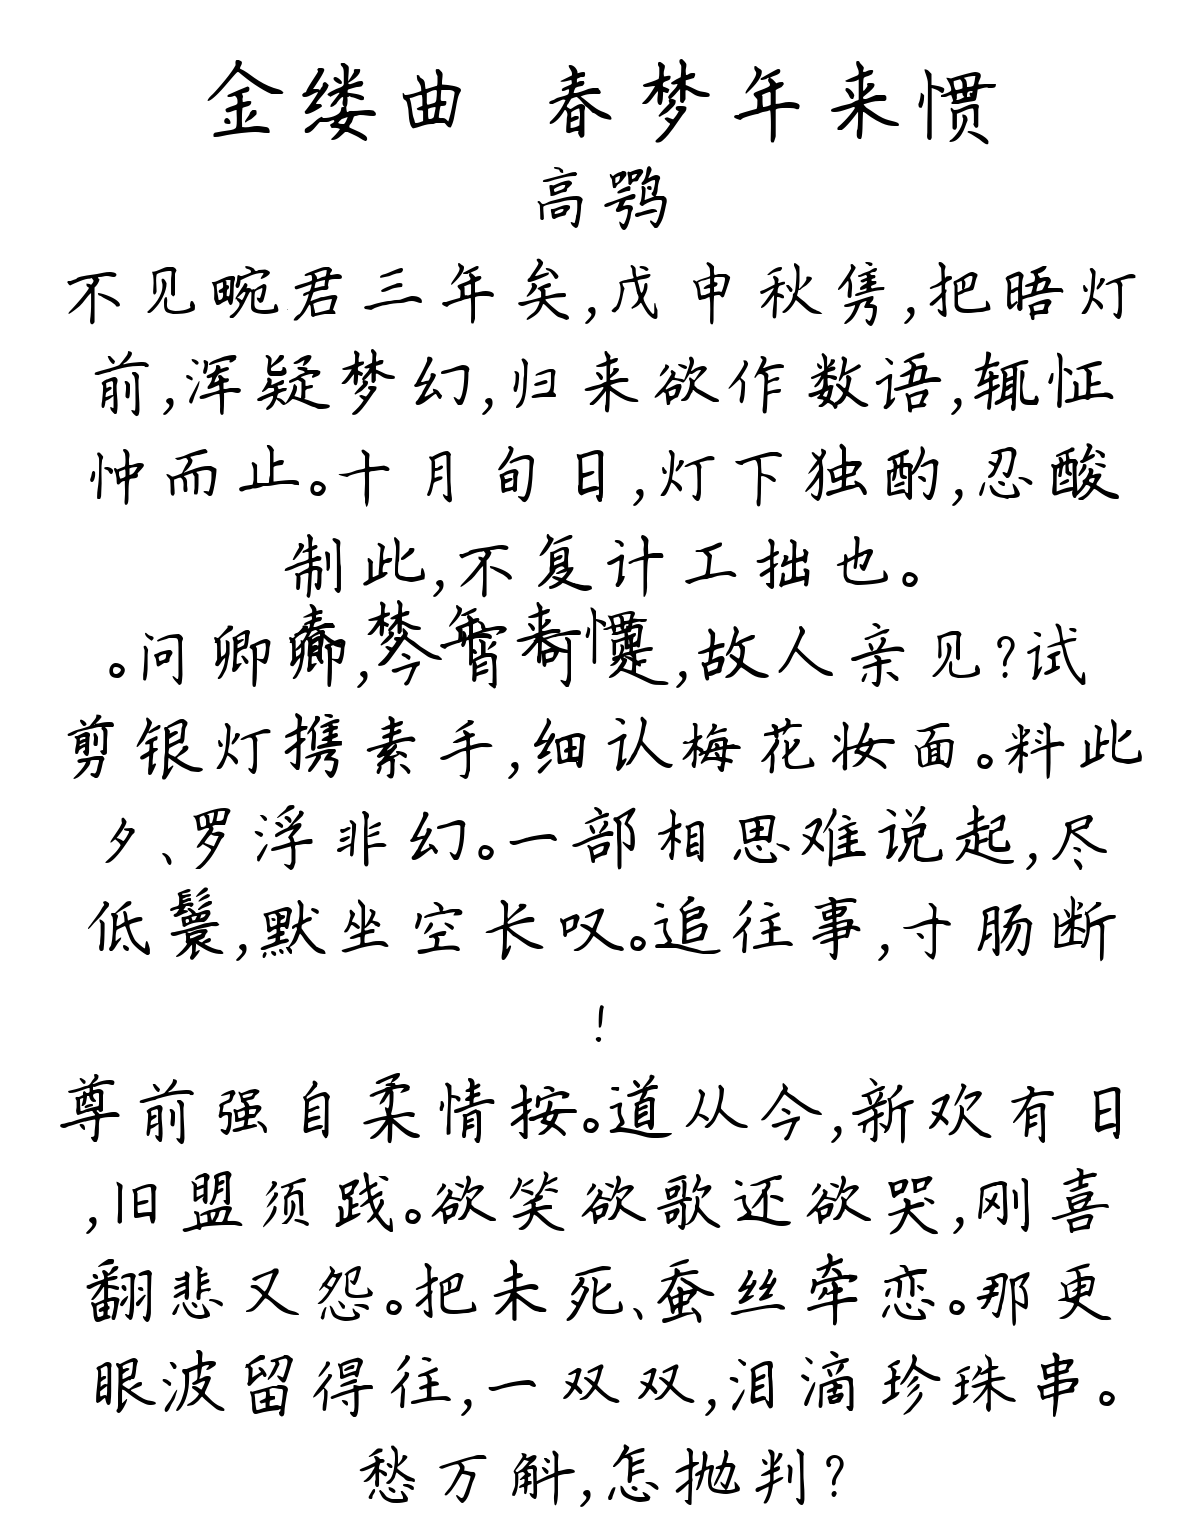 金缕曲 春梦年来惯
高鹗
不见畹君三年矣,戊申秋隽,把晤灯
前,浑疑梦幻,归来欲作数语,辄怔
忡而止。十月旬日,灯下独酌,忍酸
制此,不复计工拙也。
春梦年来惯
。问卿卿,今宵可是,故人亲见?试
剪银灯携素手,细认梅花妆面。料此
夕、罗浮非幻。一部相思难说起,尽
低鬟,默坐空长叹。追往事,寸肠断
!
尊前强自柔情按。道从今,新欢有日
,旧盟须践。欲笑欲歌还欲哭,刚喜
翻悲又怨。把未死、蚕丝牵恋。那更
眼波留得往,一双双,泪滴珍珠串。
愁万斛,怎抛判?